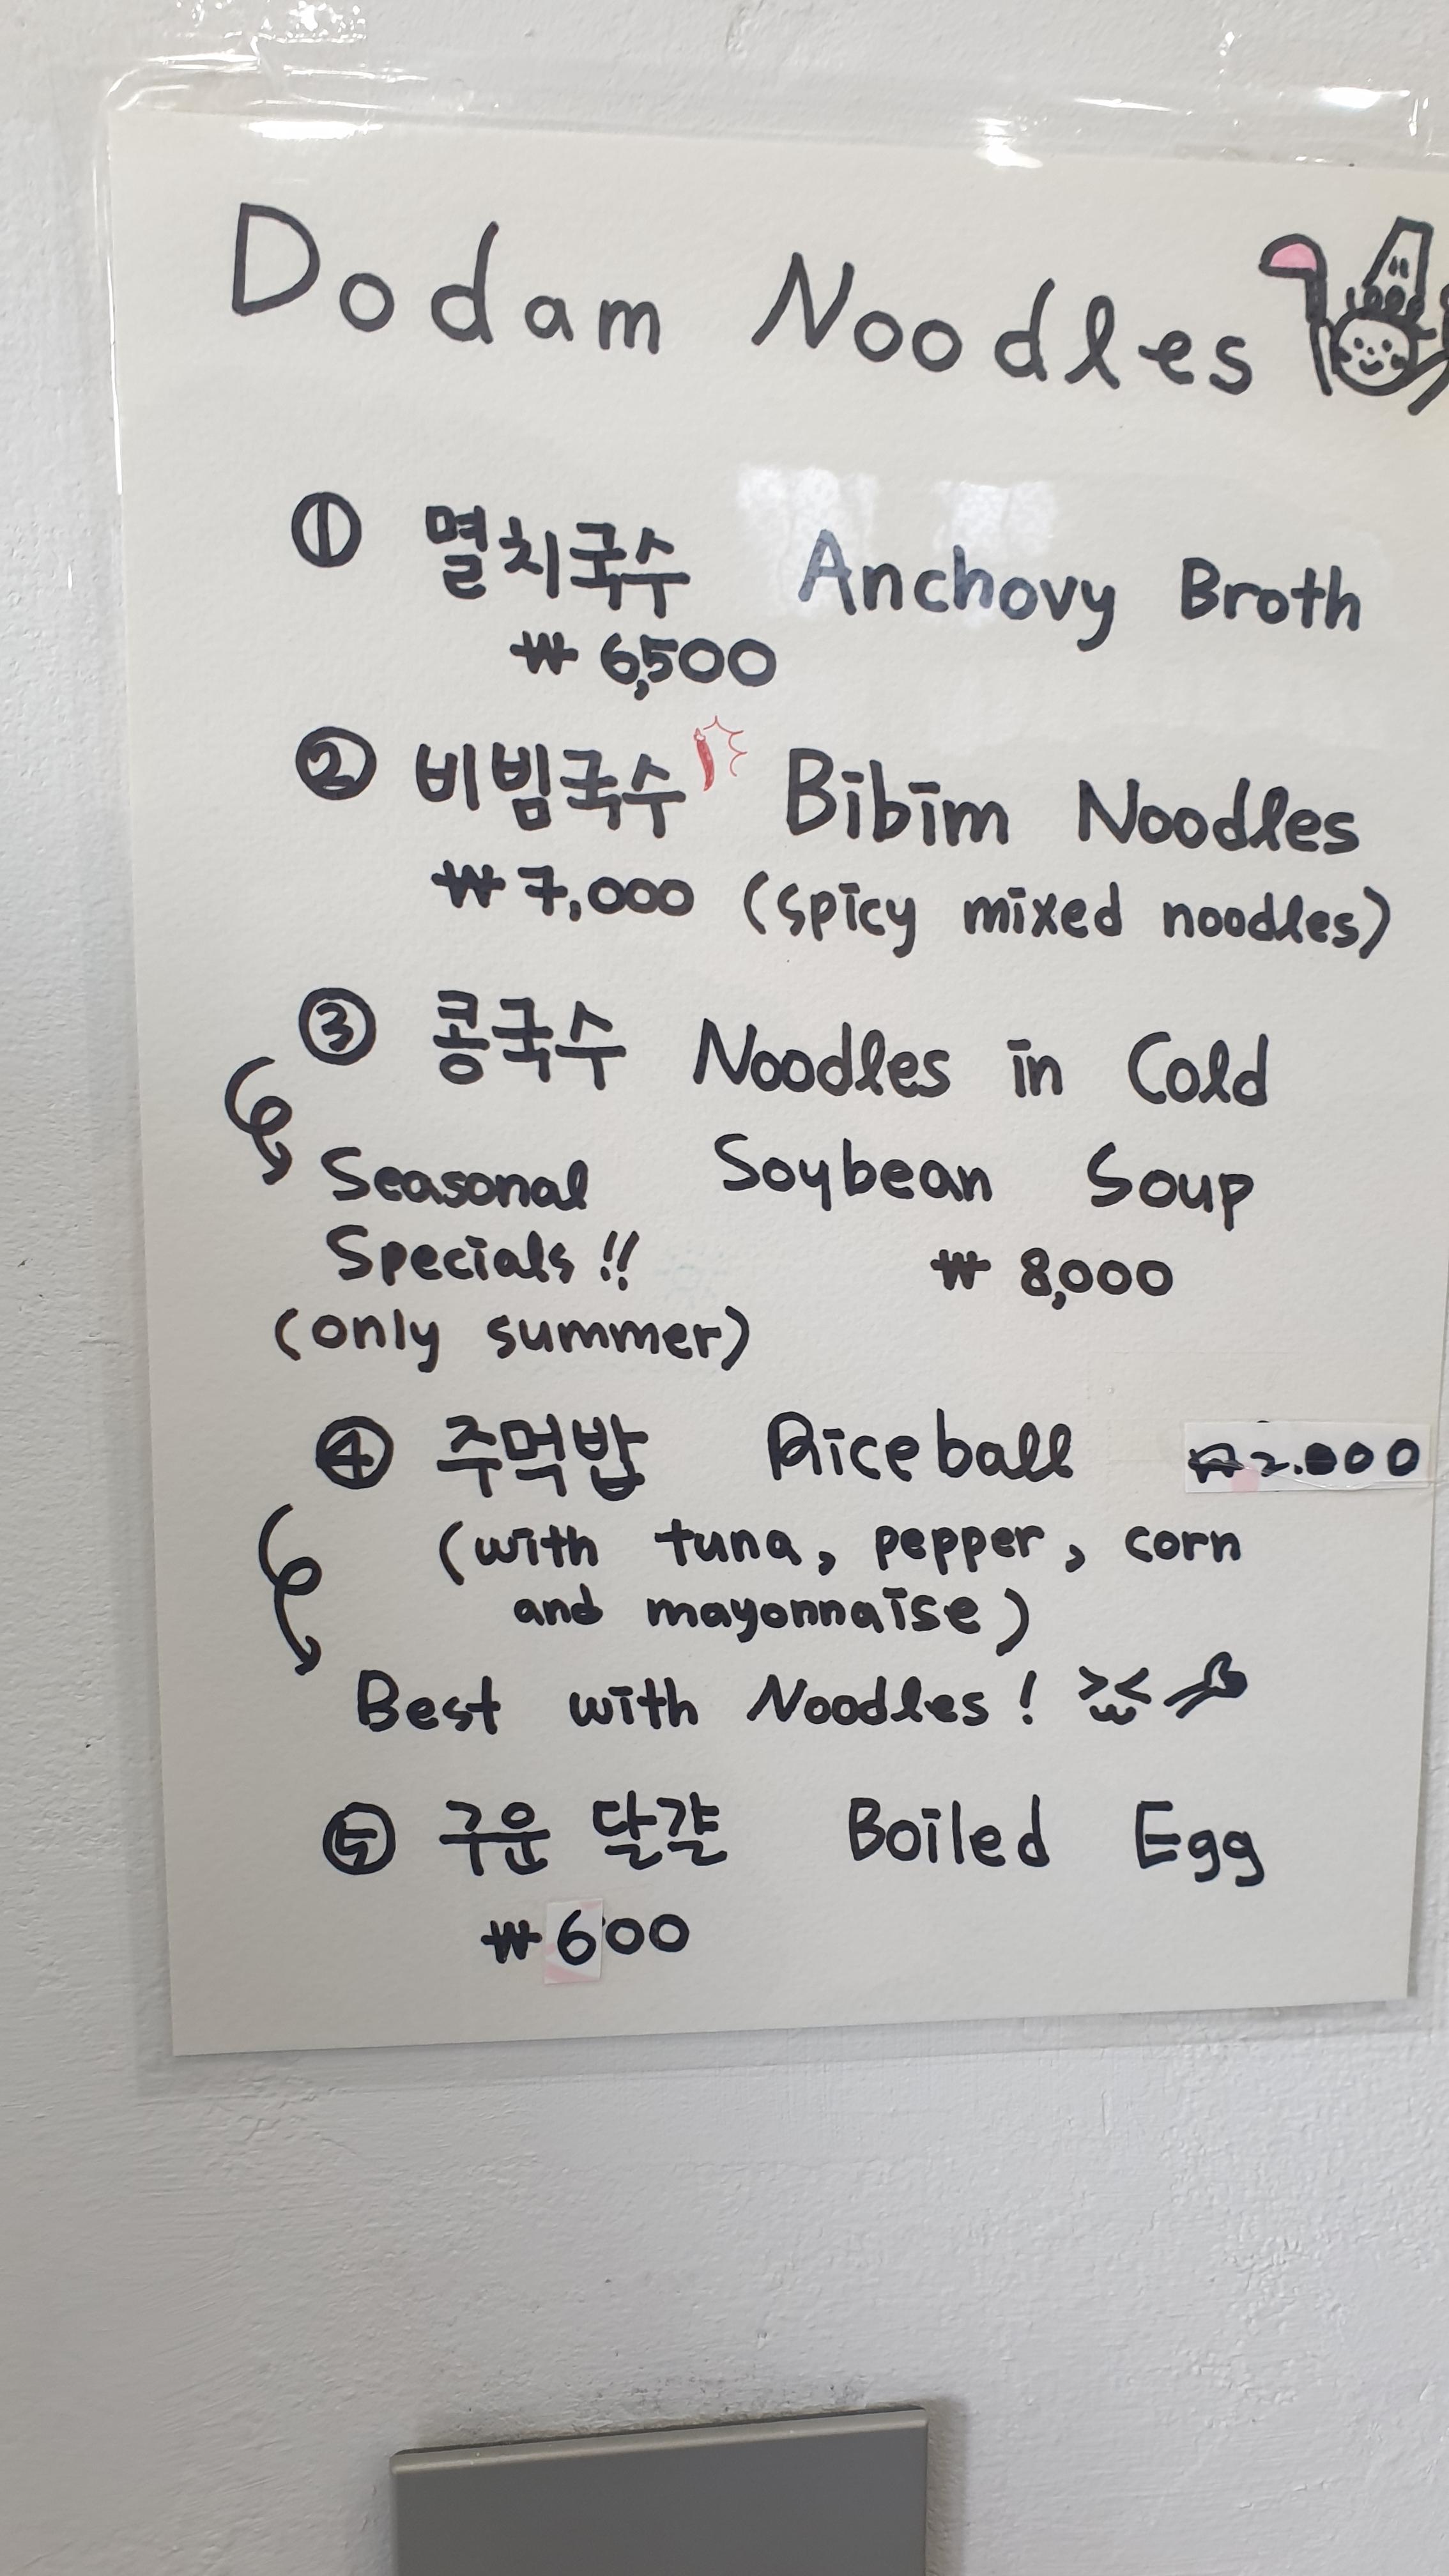 Dodam Noodles
① 멸치국수 Anchovy Broth
₩ 6,500
② 비빔국수 Bibim Noodles
₩ 7,000 (spicy mixed noodles)
③ 콩국수 Noodles in Cold
Seasonal Soybean Soup
Specials!! ₩ 8,000
(only summer)
④ 주먹밥 Riceball ₩2.000
(with tuna, pepper, corn
and mayonnaise)
Best with Noodles!
⑤ 구운 달걀 Boiled Egg
₩ 600